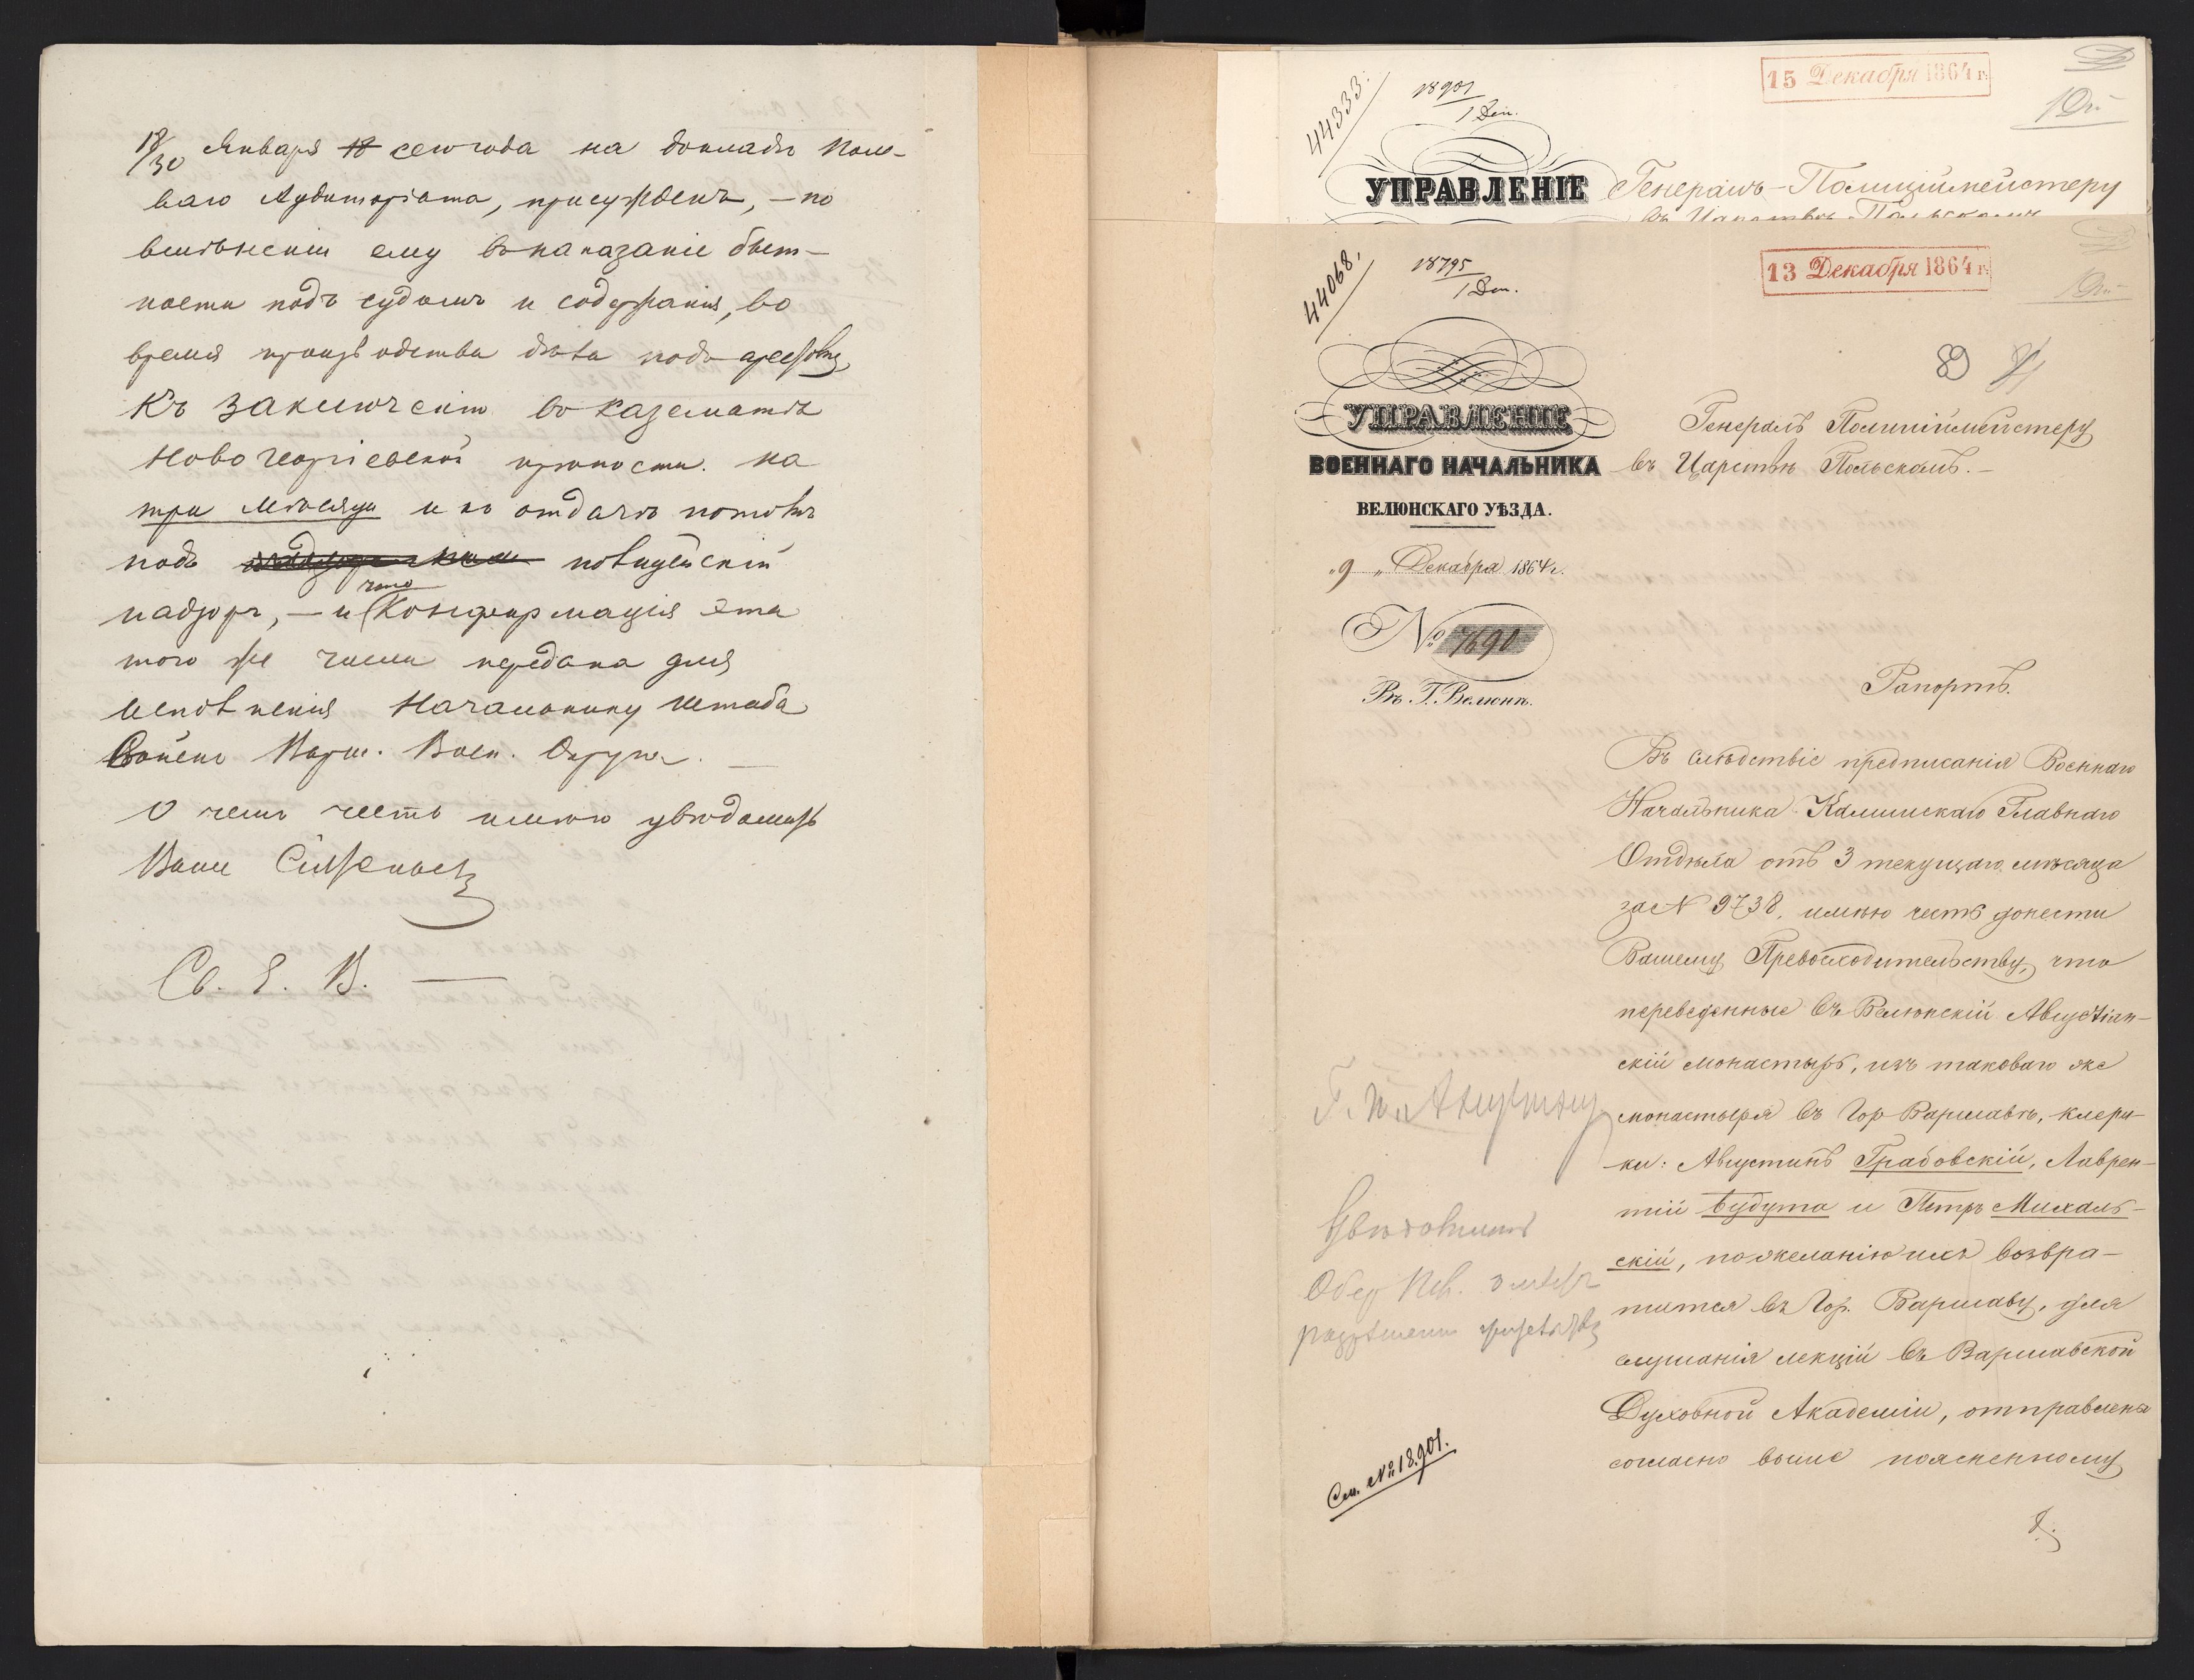 18/30 Января 18 сего года на докладѣ Поле-
ваго Аудиторіата, присужденъ, — по
вмѣненіи ему въ наказаніе быт-
ности подъ судомъ и содержанія, во
время производства дѣла подъ арестомъ,
къ заключенію въ казематѣ
Новогеоргіевской крѣпости на
три мѣсяца и къ отдачѣ потомъ
подъ полицейскій
надзоръ, — и что Конфирмація эта
того же числа передана для
исполненія Начальнику Штаба
Войскъ Варш. Воен. Округа. —
О чемъ честь имѣю увѣдомить
Ваше Сіятельст
Св. Е. В. —
44333.
18901
1 Деп.
15 Декабря 1864 г.
УПРАВЛЕНІЕ
Генералъ-Полиціймейстеру
въ Царствѣ Польскомъ
44068.
18795
1 Деп.
13 Декабря 1864 г.
89
УПРАВЛЕНІЕ
ВОЕННАГО НАЧАЛЬНИКА
ВЕЛЮНСКАГО УѢЗДА.
"9" Декабря 1864 г.
№ 7690
Въ Г. Велюнѣ.
Генералъ Полиціймейстеру
въ Царствѣ Польскомъ. —
Рапортъ.
Въ слѣдствіе предписанія Военнаго
Начальника Калишскаго Главнаго
Отдѣла отъ 3 текущаго мѣсяца
за № 9738, имѣю честь донести
Вашему Превосходительству, что
переведенные въ Велюнскій Августіан-
скій монастырь, изъ таковаго же
монастыря въ Гор. Варшавѣ, клери-
ки: Августинъ Грабовскій, Лаврен-
тій Будута и Петръ Михаль-
скій, по желанію ихъ возвра-
титься въ Гор. Варшаву, для
слушанія лекцій въ Варшавской
Духовной Академіи, отправлены
согласно выше поясненному
Увѣдомить
См. № 18.901.